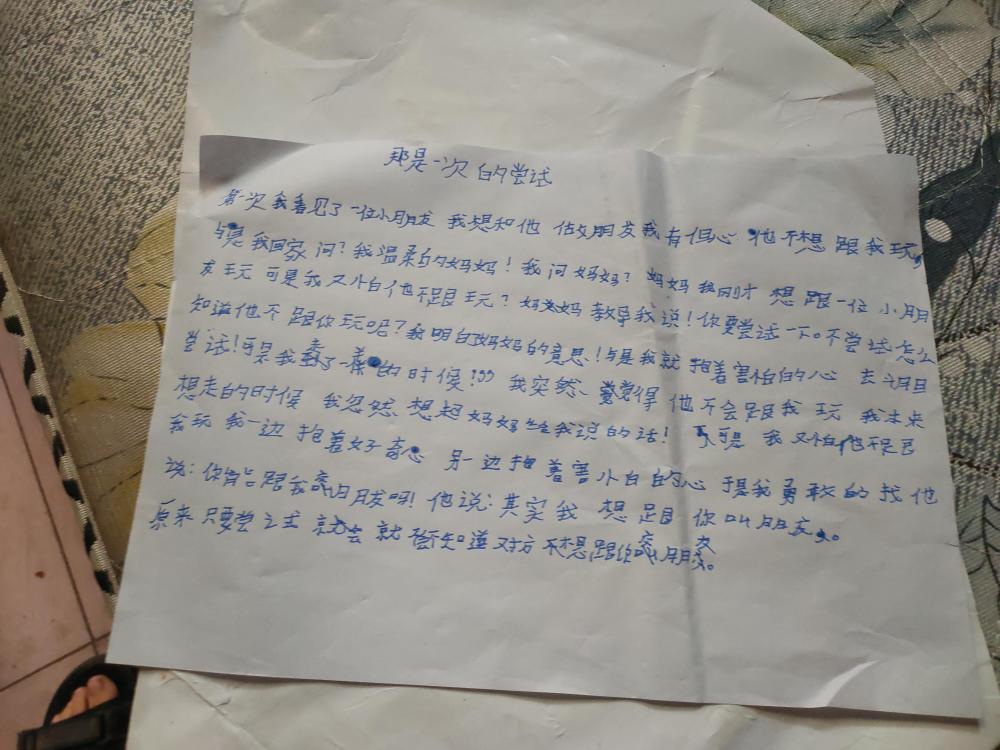 那是一次的尝试
第一次我看见了一位小朋友 我想和他 做朋友我有但心 他不想 跟我玩,
与是我回家 问?我温柔的妈妈!我问妈妈?妈妈我刚才 想跟一位 小朋
友玩 可是我又怕他不跟玩?妈妈教导我说!你要尝试一下。不尝试怎么
知道他不跟你玩呢?我明白妈妈的意思!与是我就抱着害怕的心 去
尝试!可是我 了一 的时候!我突然、觉得他不会跟我玩 我本来
想走的时候 我忽然、想起妈妈 我说的话!可是 我又怕他不跟
我玩 我一边 抱着好奇心 另一边抱着害怕的心 于是我勇敢的找他
说:你肯 跟我 朋友吗!他说:其实我 想 跟 你叫朋友。
原来 只要尝试 就会 就 知道对方不想跟你 交朋友。